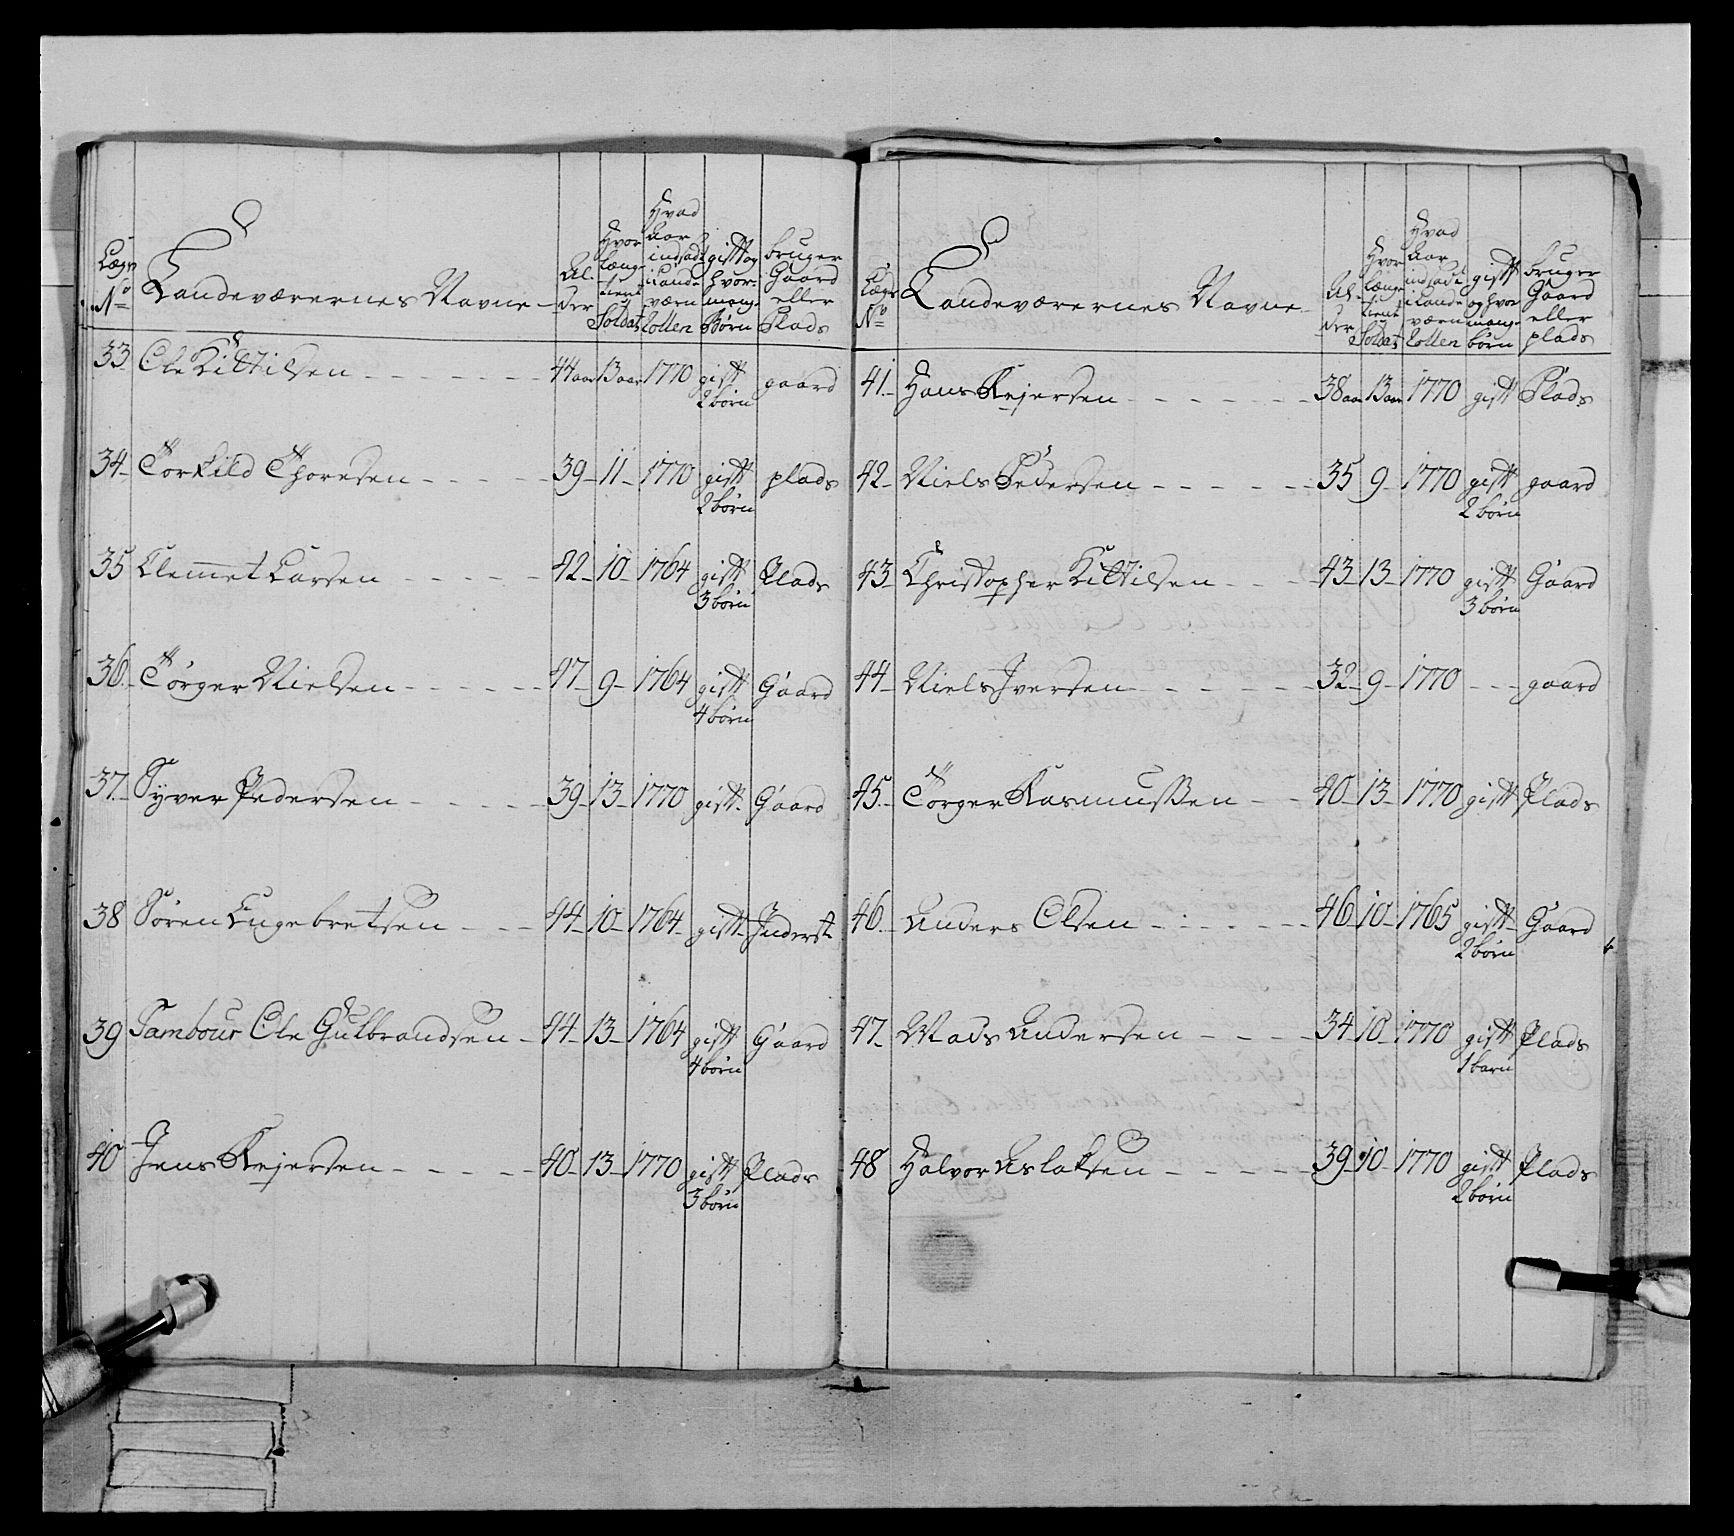 Lægs No
Landeværernes Navne
Al-
der
Hvor
længe
tient
Soldat
Hvad
Aar
indsadt
i Lande
værn
Rollen
gift og
hvor-
mange
Børn
bruger
Gaard
eller
Plads
33 Ole Kittilsen 44 aar 13 aar 1770 gift gaard
2 børn
34 Torkild Thoresen 39 11 1770 gift plads
2 børn
35 Clemmet Larsen 42 10 1764 gift Plads
3 børn
36. Törger Nielsen 47 9 1764 gift Gaard
4 børn
37. Syver Pedersen 39 13 1770 gift. Gaard
38 Sören Engebretsen 44 10 1764 gift Inderst
39 Tambour Ole Gulbrandsen 44 13 1764 gift Gaard
4 børn
40 Jens Rejersen 40 13 1770 gift Plads
3 børn
Lægs No
Landeværernes Navne
Al-
der
Hvor
længe
tient
Soldat
Hvad
Aar
indsadt
i Lande
værn
Rollen
gift
og hvor
mange
børn
bruger
Gaard
eller
plads
41. Hans Rejersen 38 aar 13 aar 1770 gift Plads
42 Niels Pedersen 35 9 1770 gift gaard
2 børn
43 Christopher Kittilsen 43 13 1770 gift Gaard
3 børn
44 Niels Iversen 32 9 1770 - - - gaard
45. Törger Rasmussen 40 13 1770 gift Plads
46. Anders Olsen 46 10 1765 gift Gaard
2 børn
47 Mads Andersen 34 10 1770 gift Plads
1 barn
48 Halvor Aslaksen 39 10 1770 gift Plads
2 børn